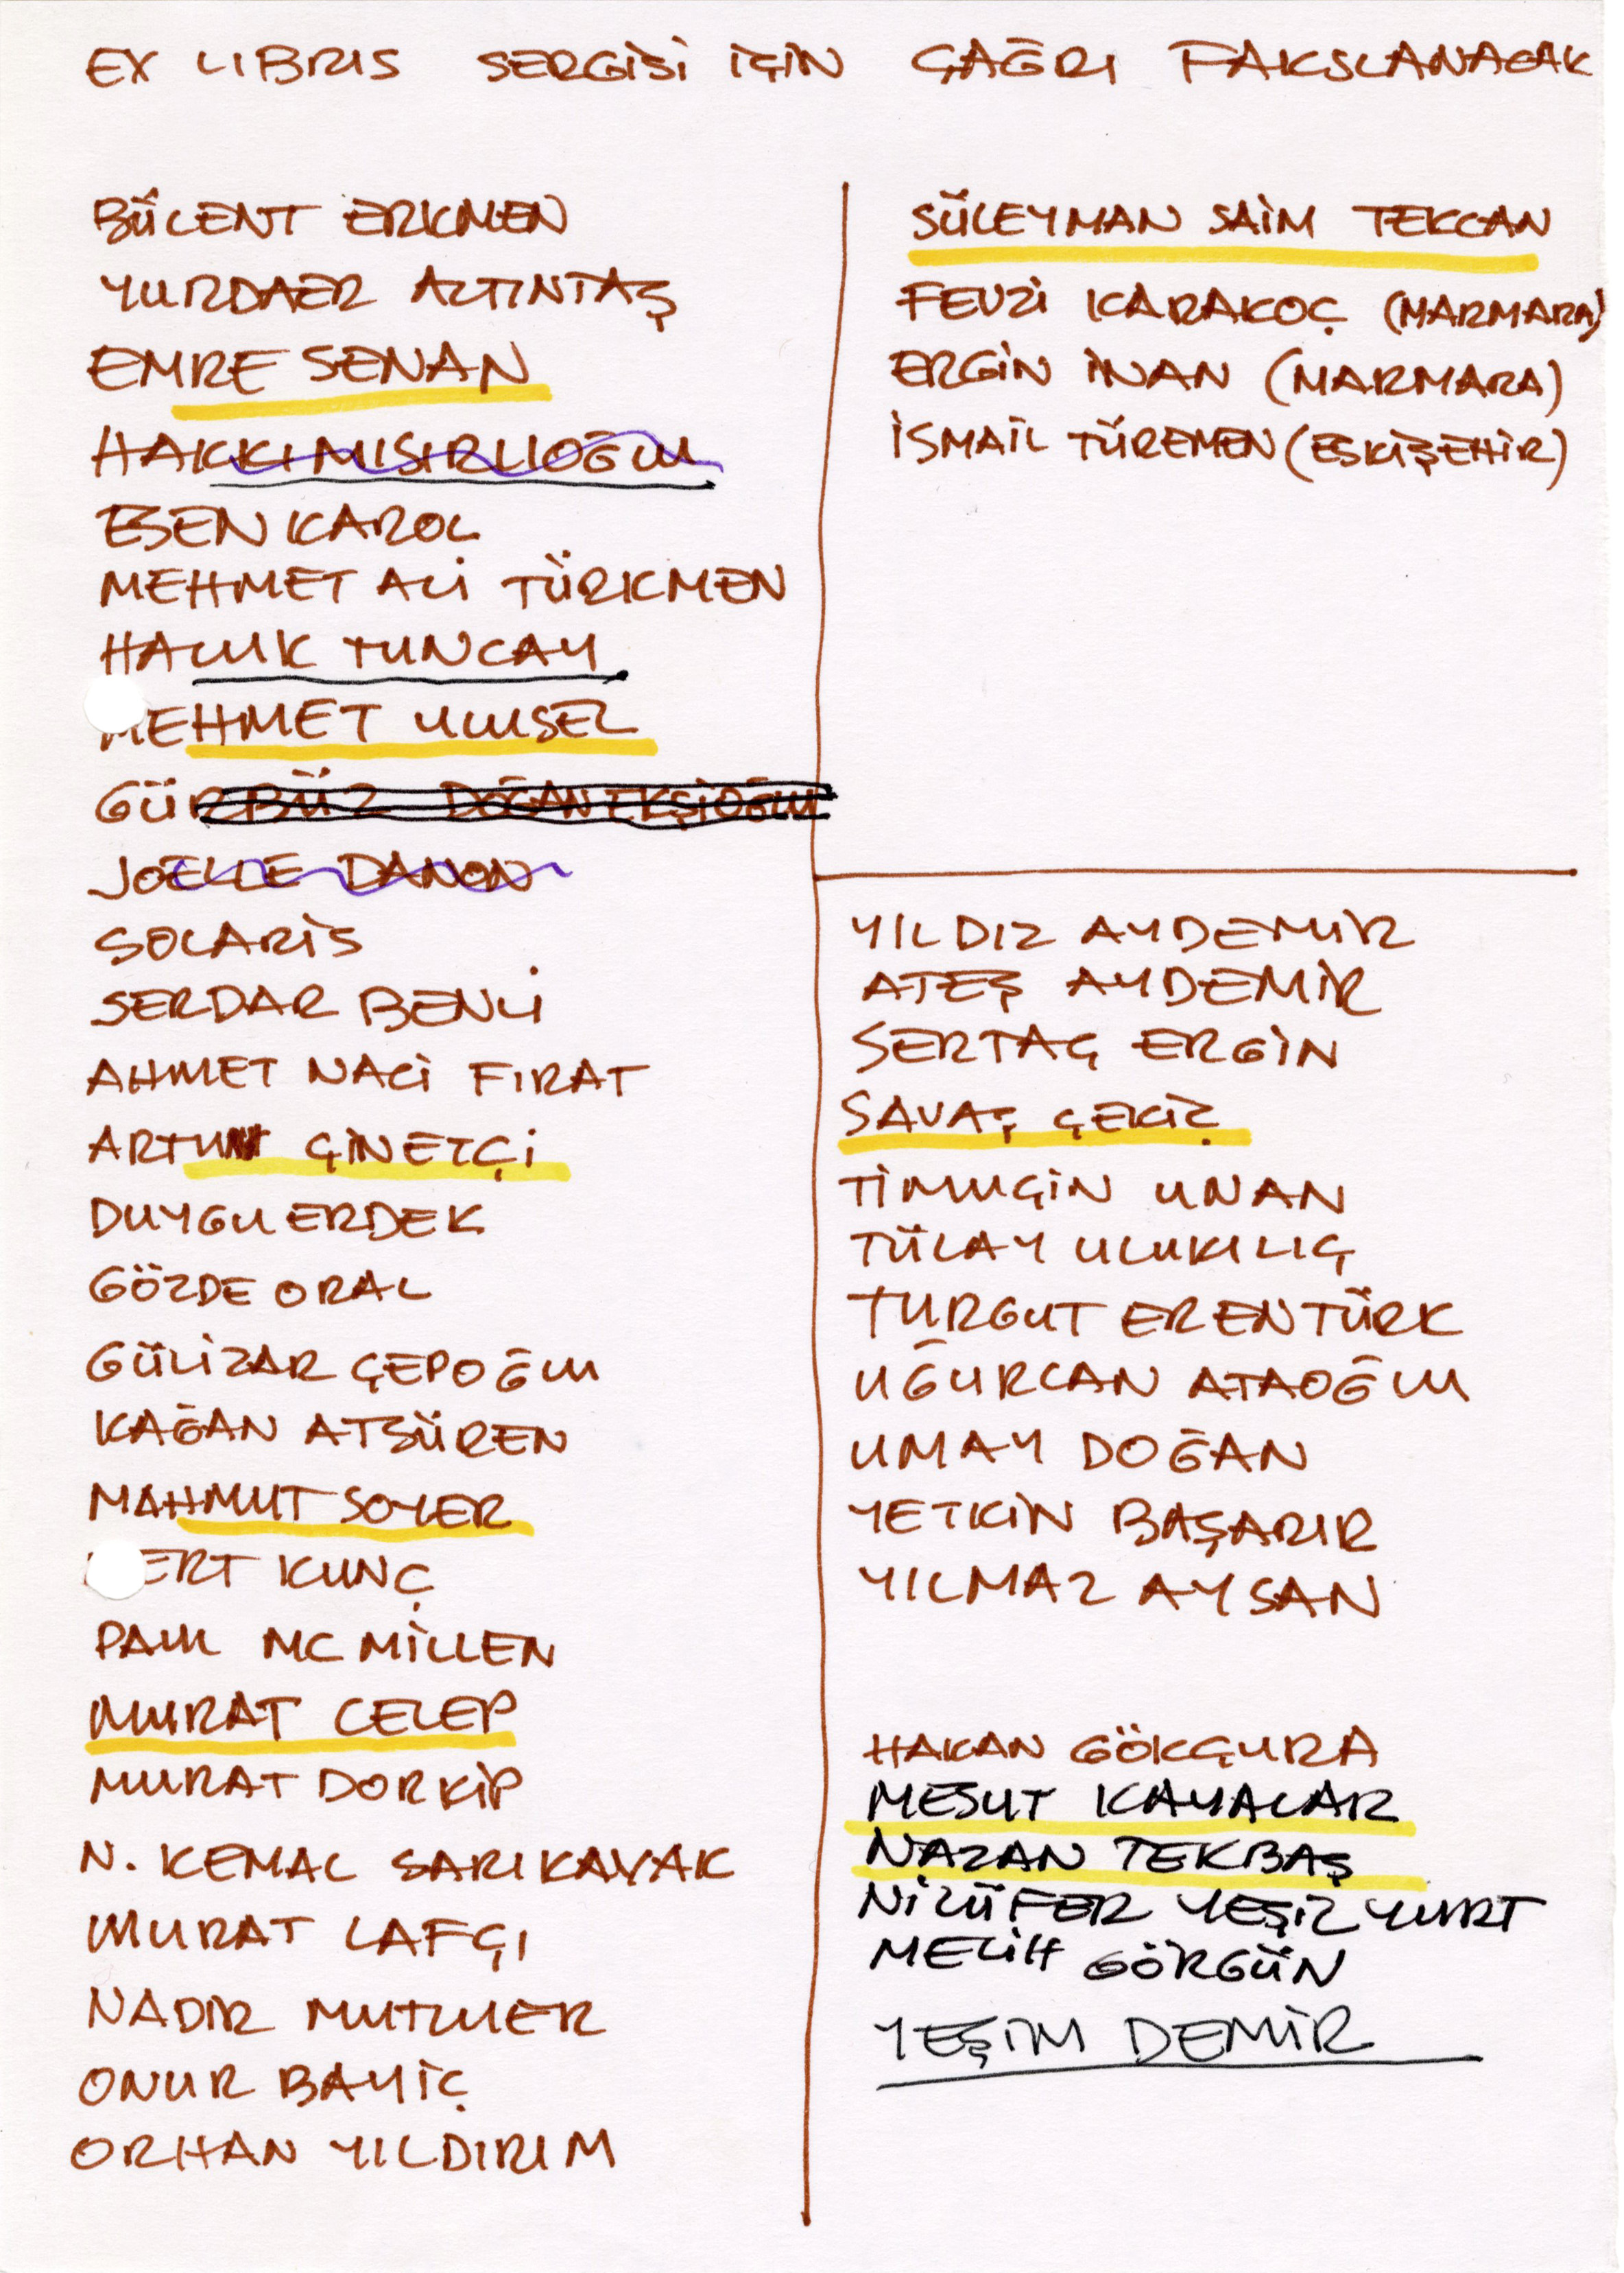 EX LIBRIS SERGİSİ İÇİN ÇAĞRI FAKSLANACAK
BÜLENT ERKMEN
YURDAER ALTINTAŞ
EMRE SENAN
HAKKI MISIRLIOĞLU
ESEN KAROL
MEHMET ALİ TÜRKMEN
HALUK TUNCAY
MEHMET ULUSEL
GÜRBÜZ DOĞAN EKŞİOĞLU
JOELLE DANON
SOLARİS
SERDAR BENLİ
AHMET NACİ FIRAT
ÇİNETÇİ
DUYGU ERDEK
GÖZDE ORAL
GÜLİZAR ÇEPOĞLU
KAĞAN ATSÜREN
MAHMUT SOYER
MERT KUNÇ
PAUL MCMİLLEN
MURAT CELEP
MURAT DORKİP
N. KEMAL SARIKAVAK
MURAT LAFÇI
NADİR MUTLUER
ONUR BAYİÇ
ORHAN YILDIRIM
SÜLEYMAN SAİM TEKCAN
FEVZİ KARAKOÇ (MARMARA)
ERGİN İNAN (MARMARA)
İSMAİL TÜREMEN (ESKİŞEHİR)
YILDIZ AYDEMİR
ATEŞ AYDEMİR
SERTAÇ ERGİN
SAVAŞ ÇEKİÇ
TİMUÇİN UNAN
TÜLAY ULUKILIÇ
TURGUT ERENTÜRK
UĞURCAN ATAOĞLU
UMAY DOĞAN
YETKİN BAŞARIR
YILMAZ AYSAN
HAKAN GÖKÇURA
MESUT KAYALAR
NAZAN TEKBAŞ
NİLÜFER YEŞİLYURT
MELİH GÖRGÜN
YEŞİM DEMİR